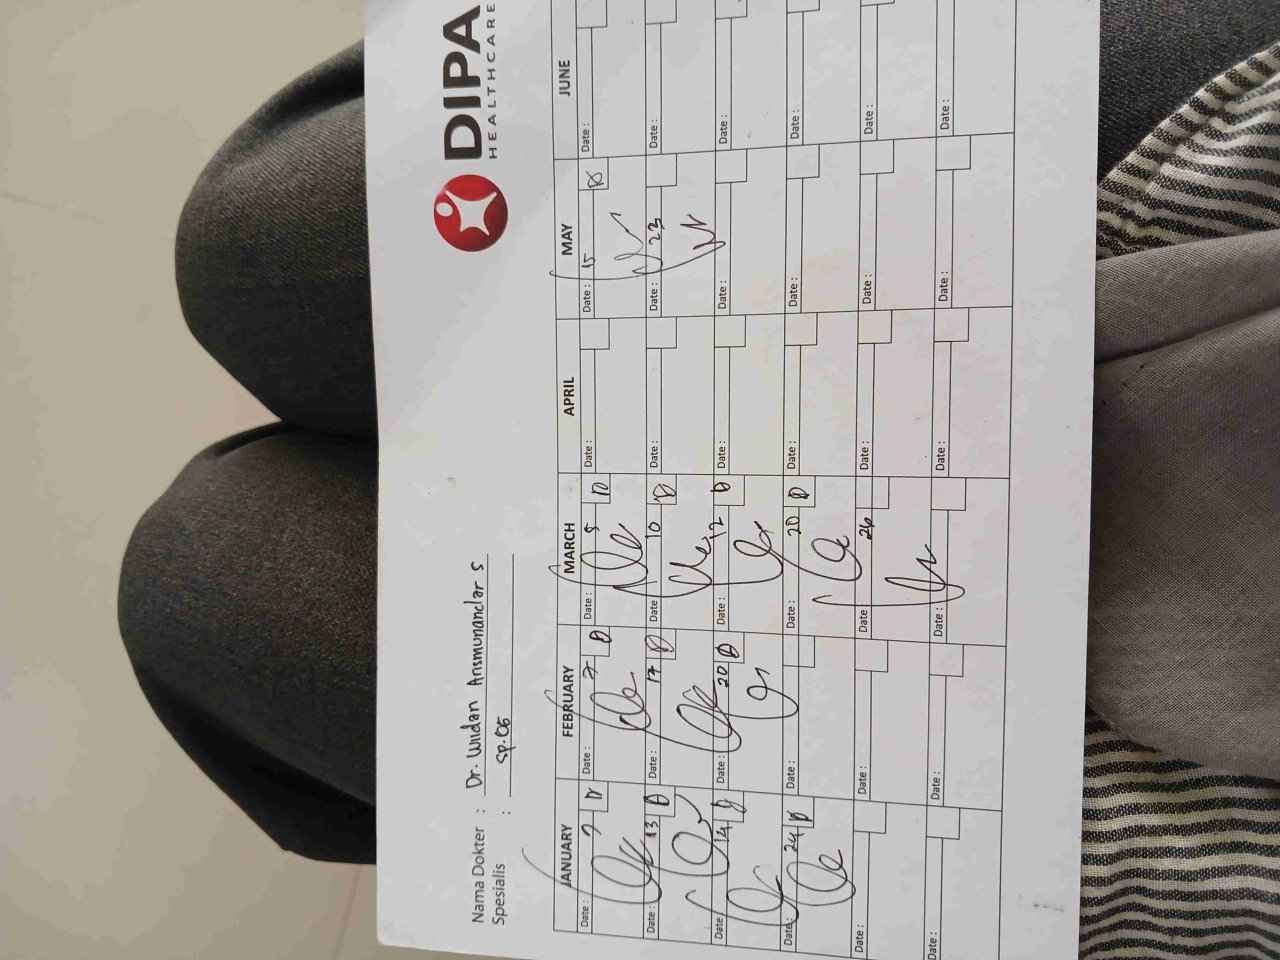 DIPA
HEALTHCARE
Nama Dokter : Dr. Wildan Ansmunandar S
Spesialis : Sp.OG
JANUARY FEBRUARY MARCH APRIL MAY JUNE
Date : 7 Date : 7 Date : 5 Date : Date : 15 Date :
Date : 13 Date : 17 Date : 10 Date : Date : 23 Date :
Date : 14 Date : 20 Date : 12 Date : Date : Date :
Date : 24 Date : Date : 20 Date : Date : Date :
Date : Date : Date : 26 Date : Date : Date :
Date : Date : Date : Date : Date : Date :